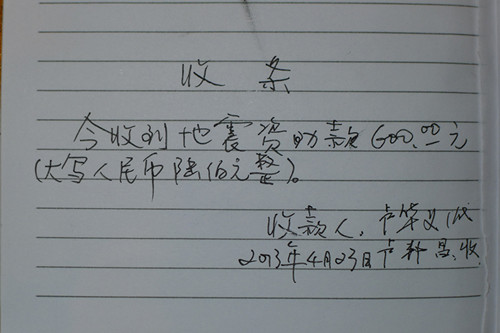 收条
今收到地震资助款600.00元
(大写人民币陆佰元整)。
收款人.卢华义(代
2013年4月23日卢科昌.收